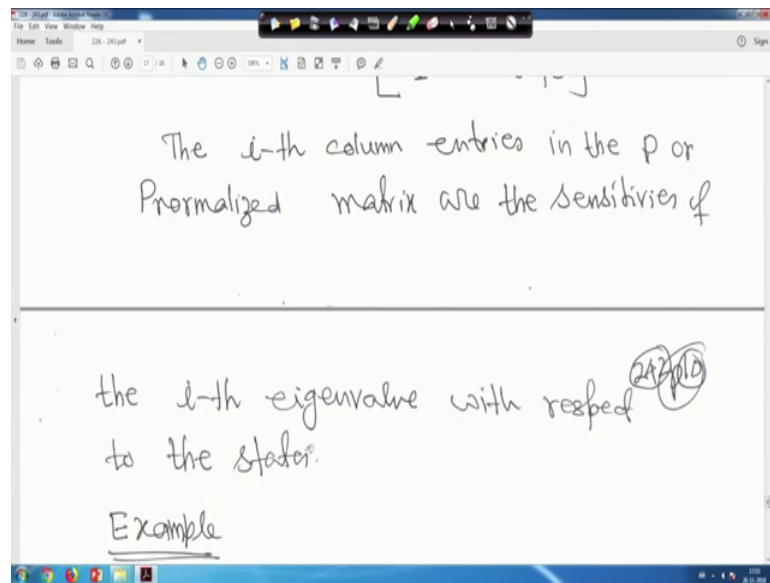 226 - 243.pdf - Adobe Acrobat Reader DC
File Edit View Window Help
Home Tools 226 - 243.pdf × Sign
17 / 18
The i-th column entries in the p or
Pnormalized matrix are the sensitivies of
the i-th eigenvalue with respect
to the states.
Example
17:53